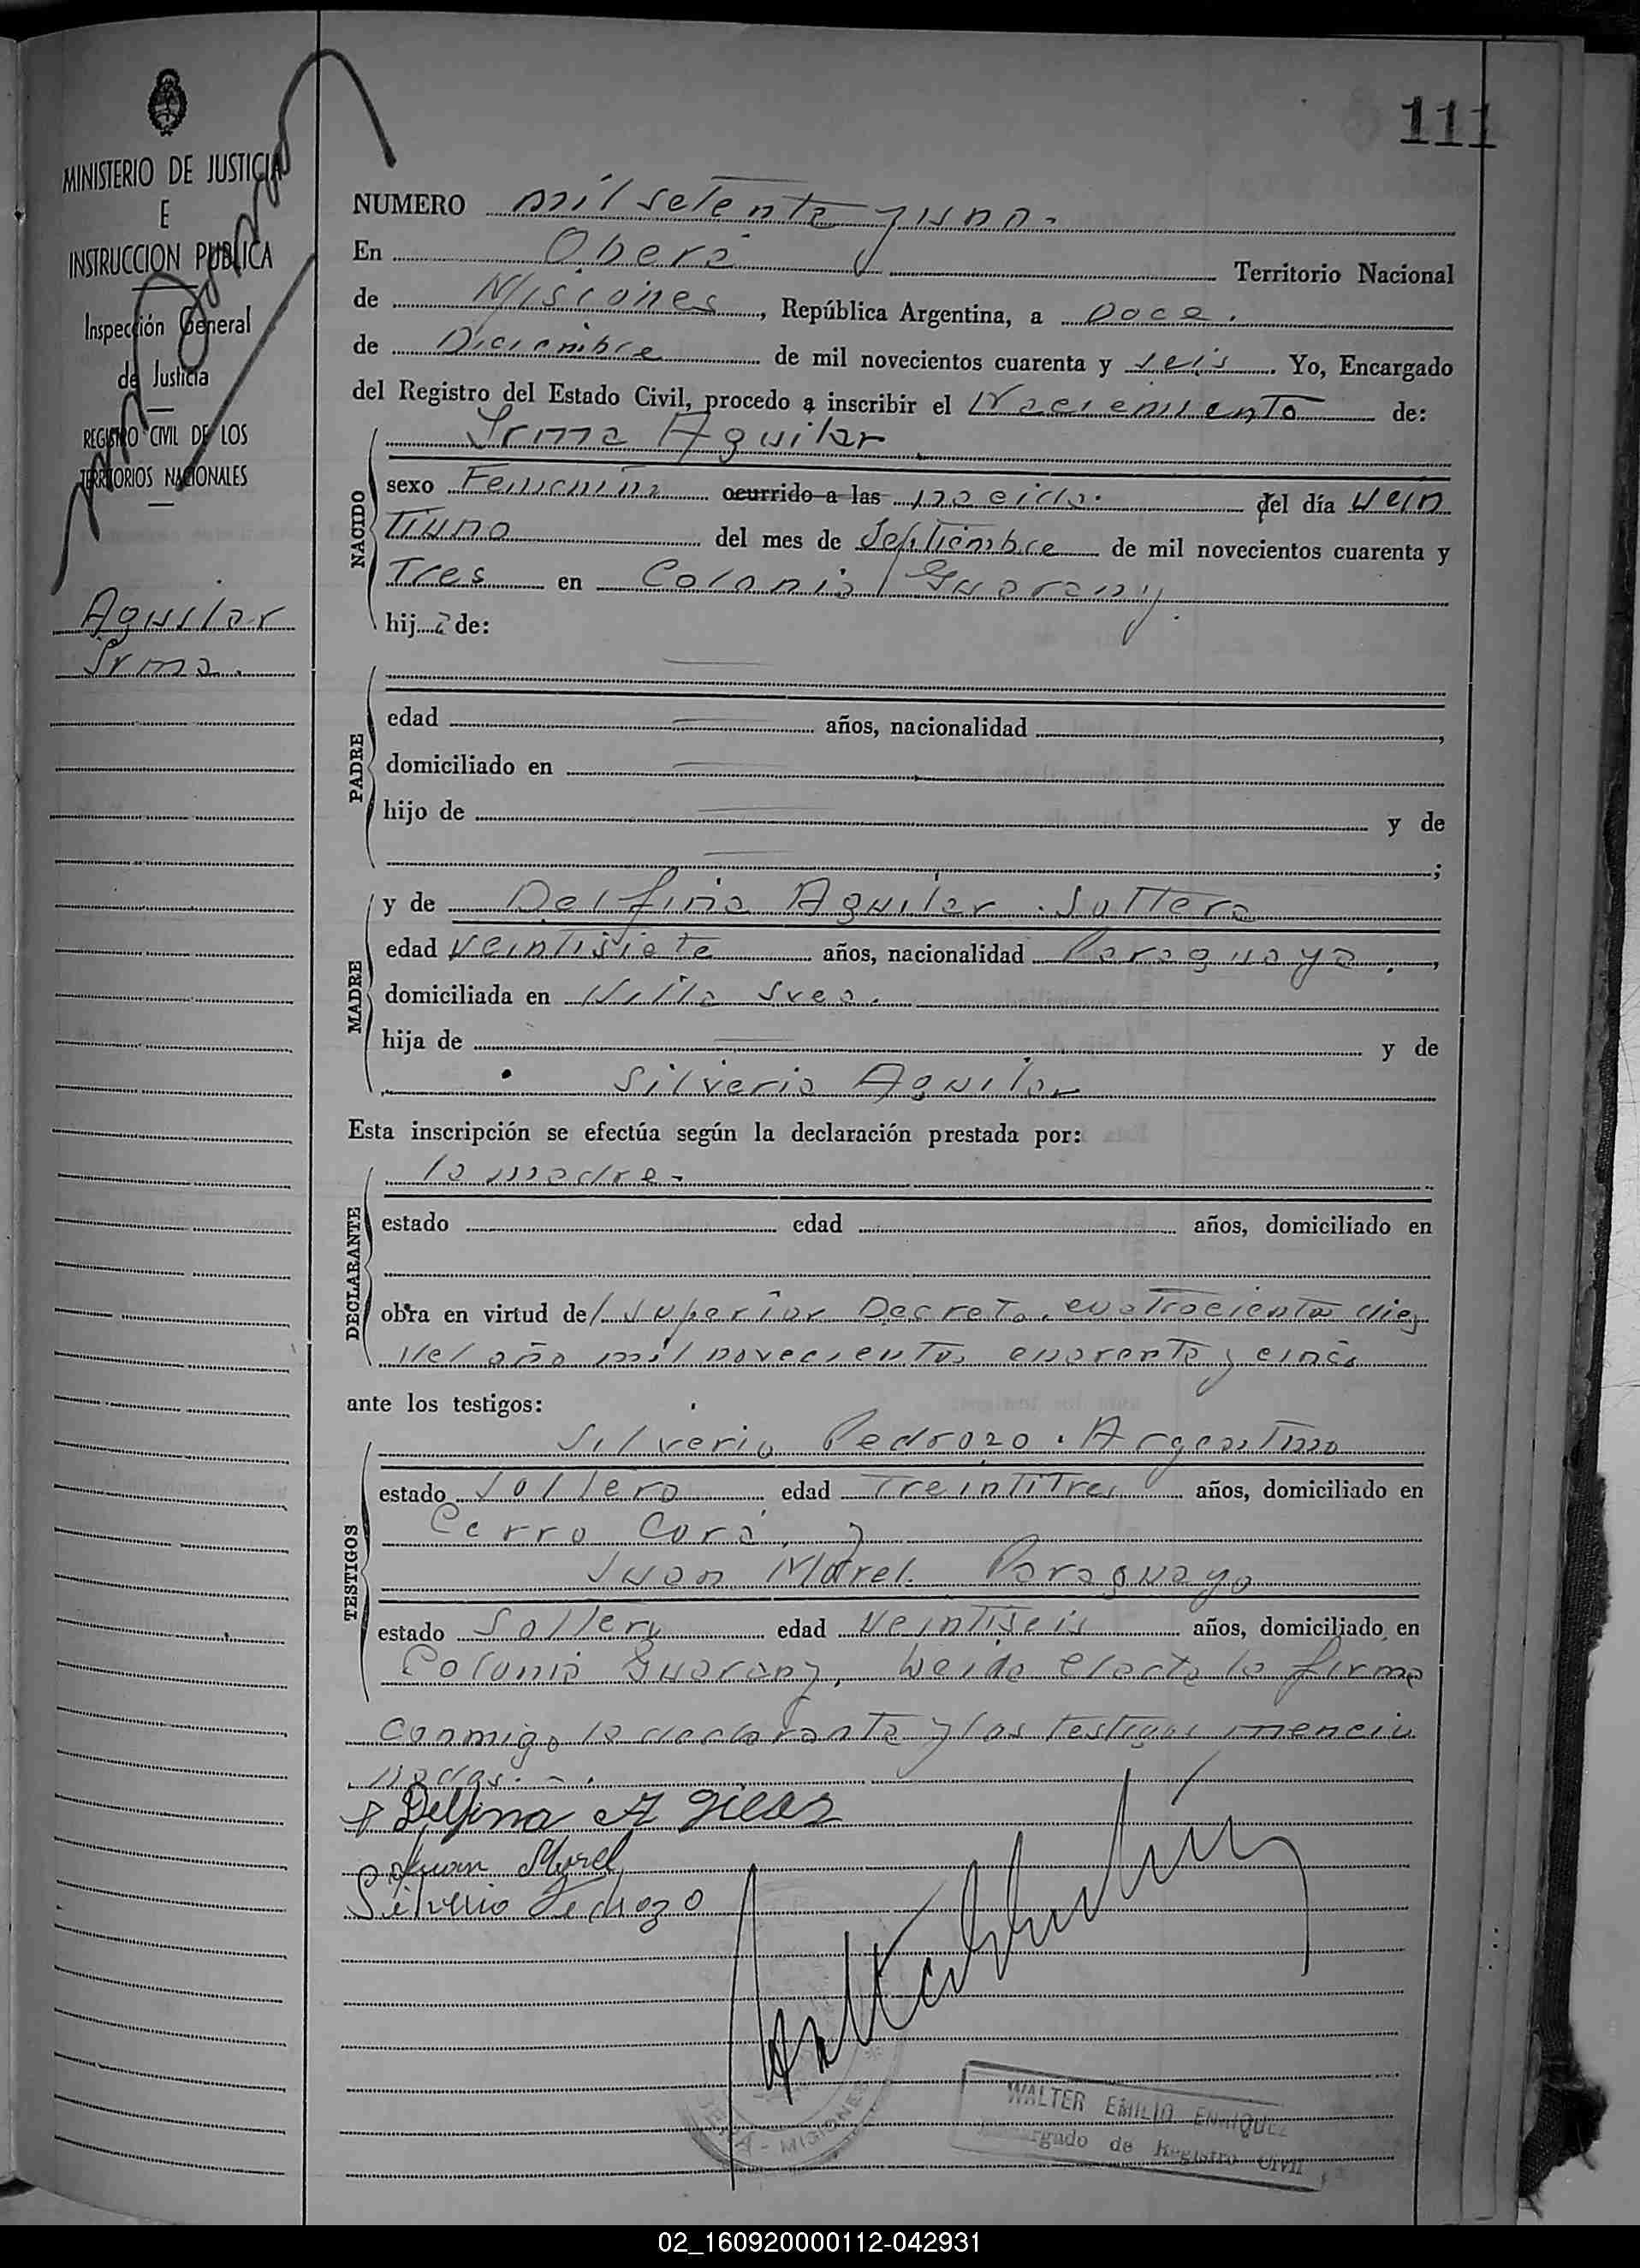 111
MINISTERIO DE JUSTICIA
E
INSTRUCCION PUBLICA
Inspección General
de Justicia
REGISTRO CIVIL DE LOS
TERRITORIOS NACIONALES
Aguilar
Irma.
NUMERO mil setenta y uno.
En Oberá Territorio Nacional
de Misiones, República Argentina, a Doce.
de Diciembre de mil novecientos cuarenta y seis. Yo, Encargado
del Registro del Estado Civil, procedo a inscribir el Nacimiento de:
Irma Aguilar
NACIDO
sexo Femenino ocurrido a las nacida. del día vein
tiuno del mes de Septiembre de mil novecientos cuarenta y
Tres en Colonia Guarany.
hija de:
PADRE
edad años, nacionalidad ,
domiciliado en
hijo de y de
;
MADRE
y de Delfina Aguilar. Soltera
edad veintisiete años, nacionalidad Paraguaya. ,
domiciliada en Villa Svea.
hija de y de
Silveria Aguilar
Esta inscripción se efectúa según la declaración prestada por:
DECLARANTE
la madre.
estado edad años, domiciliado en
obra en virtud del Superior Decreto. cuatrocientos diez
del año mil novecientos cuarenta y cinco
ante los testigos:
TESTIGOS
Silverio Pedrozo. Argentino
estado Soltero edad Treintitres años, domiciliado en
Cerro Corá, y
Juan Morel. Paraguayo
estado Soltero edad Veintiseis años, domiciliado en
Colonia Guarany, Leida el acta la firma
conmigo la declarante y los testigos mencio
nados.
Delfina Agilar
Juan Morel
Silverio Pedrozo
MISIONES
WALTER EMILIO ENRIQUEZ
Encargado de Registro Civil
02_160920000112-042931